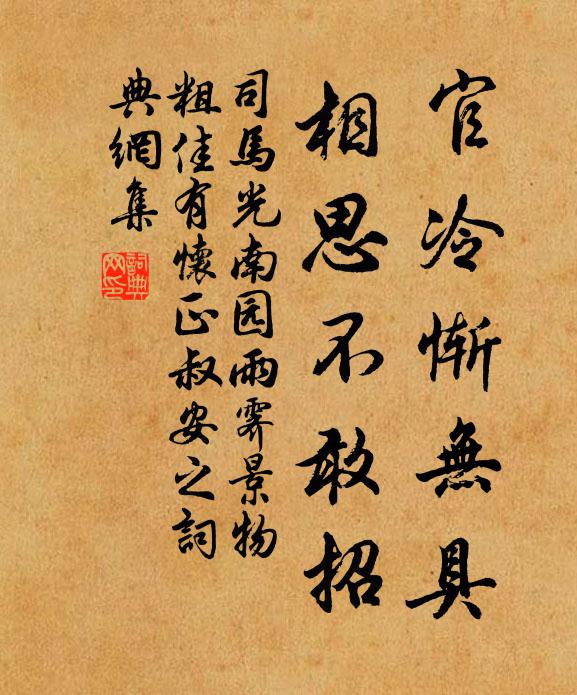 官冷惭無具
相思不敢招
司馬光南园雨霁景物
粗佳有懷正叔安之詞
典網集
詞典
网印